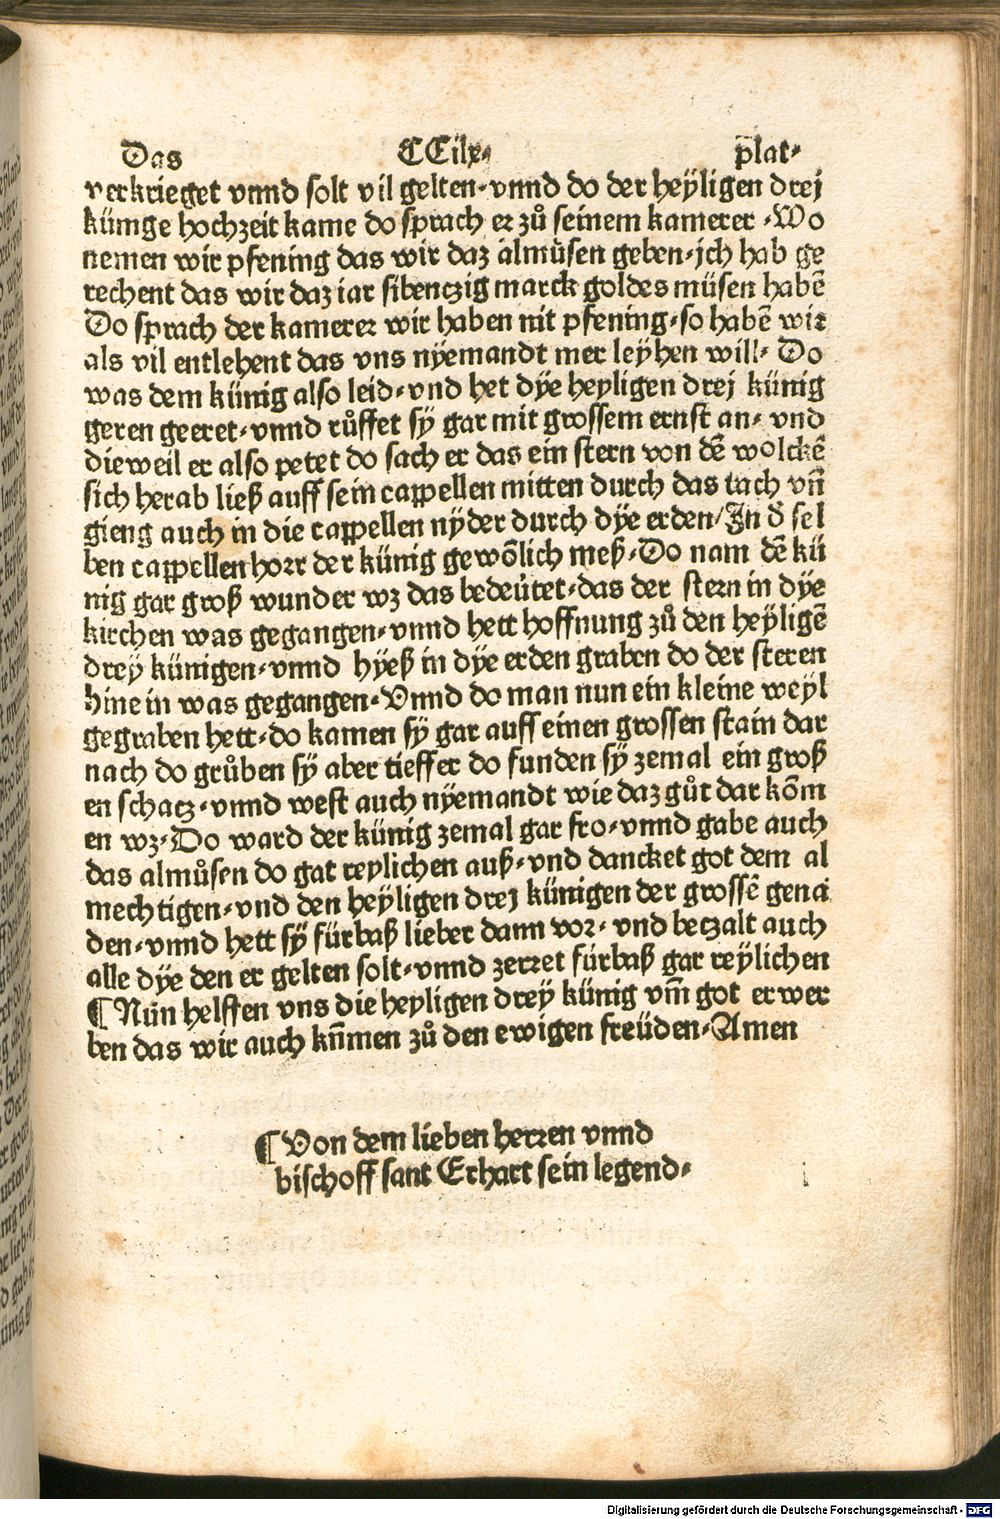 Das CCilx· plat·
verkrieget vnnd solt vil gelten·vnnd do der heÿligen drej
künige hochzeit kame do sprach er zů seinem kamerer ·Wo
nemen wir pfening das wir daz almůsen geben·jch hab ge
rechent das wir daz iar sibenczig marck goldes müsen habē
Do sprach der kamerer wir haben nit pfening·so habē wir
als vil entlehent das vns nÿemandt mer leyhen will· Do
was dem künig also leid·vnd het dÿe heyligen drej künig
geren geeret·vnnd růffet sÿ gar mit grossem ernst an· vnd
dieweil er also petet do sach er das ein stern von dē wolckē
sich herab ließ auff sein cappellen mitten durch das tach vn̄
gieng auch in die cappellen nÿder durch dÿe erden/In d̄ sel
ben cappellen horr der künig gewōlich meß·Do nam dē kü
nig gar groß wunder wz das bedeütet·das der stern in dÿe
kirchen was gegangen·vnnd hett hoffnung zů den heÿligē
drey künigen·vnnd hÿeß in dÿe erden graben do der steren
hinein was gegangen·Vnnd do man nun ein kleine weÿl
gegraben hett·do kamen sÿ gar auff einen grossen stain dar
nach do grůben sÿ aber tieffer do funden sÿ zemal ein groß
en schacz·vnnd west auch nÿemandt wie daz gůt dar kōm
en wz·Do ward der künig zemal gar fro·vnnd gabe auch
das almůsen do gat reylichen auß·vnd dancket got dem al
mechtigen·vnd den heÿligen drej künigen der grossē gena
den·vnnd hett sÿ fürbaß lieber dann vor· vnd beczalt auch
alle dÿe den er gelten solt·vnnd zerret fürbaß gar reÿlichen
¶ Nun helffen vns die heyligen dreÿ künig vm̄ got erwer
ben das wir auch kn̄men zů den ewigen freüden·Amen
¶ Von dem lieben herren vnnd
bischoff sant Erhart sein legend·
Digitalisierung gefördert durch die Deutsche Forschungsgemeinschaft - DFG